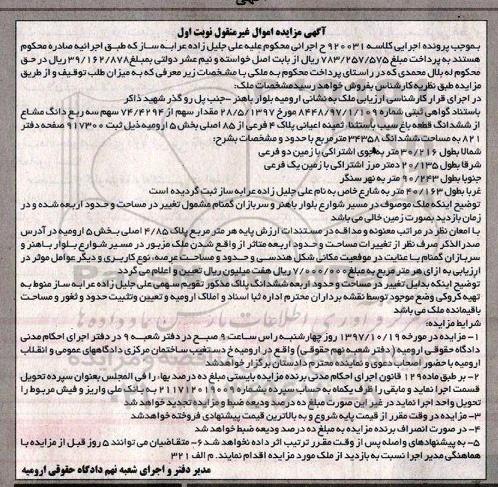 آگهی مزایده اموال غیرمنقول نوبت اول
بموجب پرونده اجرایی کلاسه ۹۲۰۰۳۱ ح اجرائی محکوم علیه علی جلیل زاده عرابه ساز که طبق اجرائیه صادره محکوم
هستند به پرداخت مبلغ ۷۸۳/۲۵۷/۵۷۵ ریال از بابت اصل خواسته و نیم عشر دولتی بمبلغ ۳۹/۱۶۲/۸۷۸ ریال در حق
محکوم له بلال محمدی که در راستای پرداخت محکوم به ملکی با مشخصات زیر معرفی که به میزان طلب توقیف و از طریق
مزایده طبق نظریه کارشناس بفروش خواهد رسید مشخصات ملک:
در اجرای قرار کارشناسی ارزیابی ملک به نشانی ارومیه بلوار باهنر - جنب پل رو گذر شهید ذاکر
باستناد گواهی ثبتی شماره ۸۴۴۸/۹۷/۱/۱۰۹ مورخ ۲۸/۵/۱۳۹۷ مقدار سهم از ۷۴/۴۲۹۴ سهم سه ربع دانگ مشاع
از ششدانگ قطعه باغ سیب باستثناء ثمنیه اعیانی پلاک ۴ فرعی از ۸۵ اصلی بخش ۵ ارومیه ذیل ثبت ۹۱۷۳۰۰ صفحه دفتر
۸۲۱ به مساحت ششدانگ ۳۴۳۵۸ متر مربع با حدود و مشخصات بشرح:
شمالا بطول ۳۰/۲۱۶ متر به جوی اشتراکی با زمین دو فرعی
شرقا بطول ۲۰/۱۳۵ دمتر مرز اشتراکی با زمین یک فرعی
جنوبا بطول ۹۰/۲۴۳ متر به نهر سنگر
غربا بطول ۴۰/۱۶۳ متر به شارع خاص به نام علی جلیل زاده عرابه ساز ثبت گردیده است
توضیح اینکه ملک موصوف در مسیر شوارع بلوار باهنر و سربازان گمنام مشمول تغییر در مساحت و حدود اربعه شده و در
زمان بازدید بصورت زمین خالی می باشد
با امعان نظر در مراتب معنونه و مداقه در مستندات ارزش پایه هر متر مربع پلاک ۴/۸۵ اصلی بخش ۵ ارومیه در آدرس
صدرالذکر صرف نظر از تغییرات مساحت و حدود اربعه متاثر از واقع شدن ملک مزبور در مسیر شوارع بلوار باهنر و
سربازان گمنام با عنایت در موقعیت مکانی شکل هندسی و حدود و مساحت عرصه، نوع کاربری و دیگر عوامل موثر در
ارزیابی به ازای هر متر مربع به مبلغ ۷/۰۰۰/۰۰۰ ریال هفت میلیون ریال تعیین و اعلام می گردد
توضیح اینکه بدلیل تغییر در مساحت و حدود اربعه ششدانگ پلاک مذکور تقویم سهمی علی جلیل زاده عرابه ساز منوط به
تهیه کروکی وضع موجود توسط نقشه برداران محترم اداره ثبت اسناد و املاک ارومیه و تعیین وتثبیت حدود و ثغور و مساحت
باقیمانده ملک می باشد
شرایط مزایده:
۱- مزایده در مورخه ۱۳۹۷/۱۰/۱۹ روز چهارشنبه راس ساعت ۹ صبح در دفتر شعبه ۹ در دفتر اجرای احکام مدنی
دادگاه حقوقی ارومیه (دفتر شعبه نهم حقوقی) واقع در ارومیه خ دستغیب ساختمان مرکزی دادگاههای عمومی و انقلاب
ارومیه با حضور اصحاب دعوی و نماینده محترم دادستان برگزار خواهد شد
۲- بر طبق ماده ۱۲۹ قانون اجرای احکام مدنی برنده مزایده بایستی مبلغ ده درصد بهاء را فی المجلس بعنوان سپرده تحویل
قسمت اجرا نماید و مابقی را ظرف یکماه به حساب سپرده بشماره ۲۱۱۷۱۲۰۱۹۰۰۹ به بانک ملی واریز و فیش مربوط را
تحویل واحد اجرا نماید در غیر این صورت مبلغ ده درصد ودیعه ضبط و مزایده تجدید خواهد شد
۳- مزایده در وقت مقرر از قیمت پایه شروع و به بالاترین قیمت پیشنهادی فروخته خواهد شد
۴- در صورت انصراف برنده مزایده به مبلغ ده درصد ودیعه ضبط خواهد شد
۵- به پیشنهادهای واصله پس از وقت مقرر ترتیب اثر داده نخواهد شد ۶- متقاضیان می توانند ۵ روز قبل از مزایده با
هماهنگی مدیر اجرا نسبت به بازدید از ملک مورد مزایده اقدام نمایند. م الف ۳۲۱
مدیر دفتر و اجرای شعبه نهم دادگاه حقوقی ارومیه